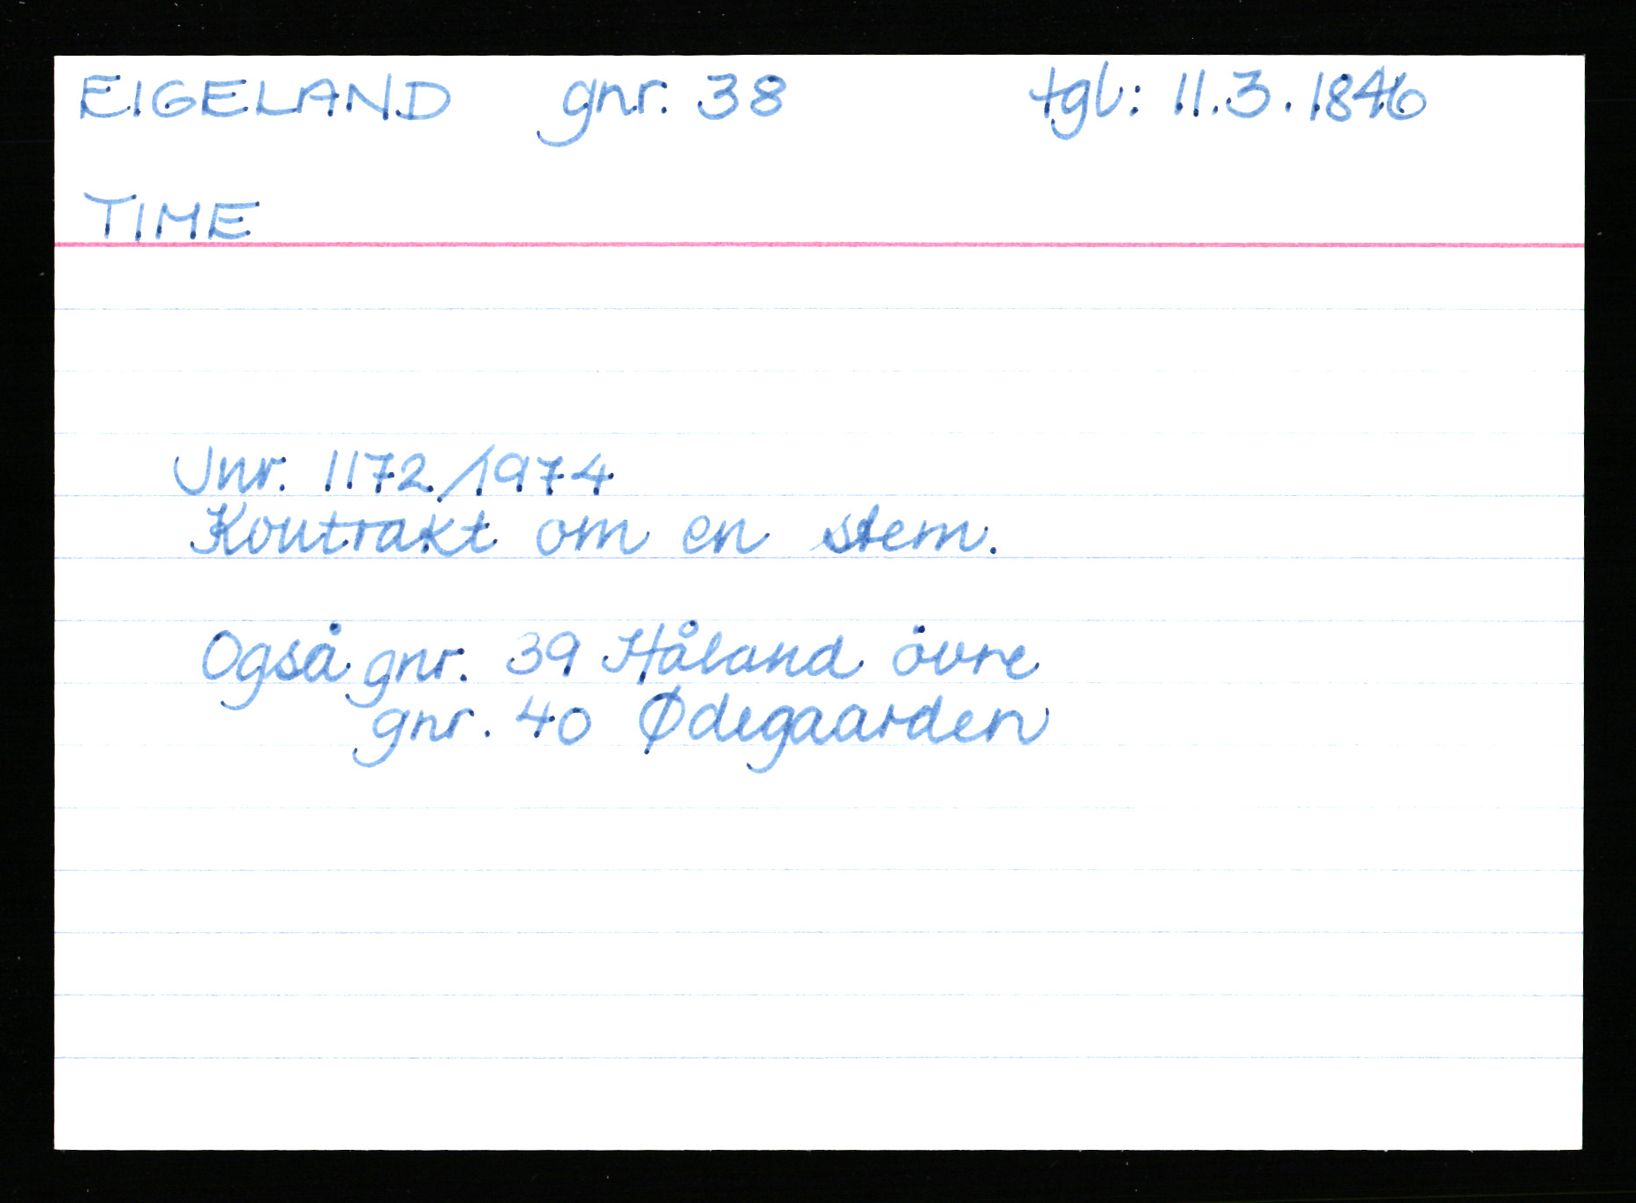 EIGELAND gnr. 38 tgl: 11.3.1846
TIME
Jnr. 1172/1974
Kontrakt om en stem.
Også gnr. 39 Håland övre
gnr. 40 Ødegaarden